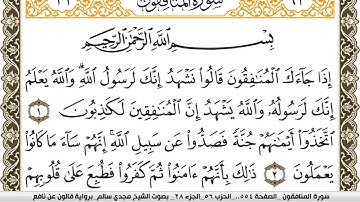 سورة المنافقون
بِسْمِ اللَّهِ الرَّحْمَٰنِ الرَّحِيمِ
إِذَا جَآءَكَ ٱلْمُنَٰفِقُونَ قَالُوا۟ نَشْهَدُ إِنَّكَ لَرَسُولُ ٱللَّهِۗ وَٱللَّهُ يَعْلَمُ
إِنَّكَ لَرَسُولُهُۥ وَٱللَّهُ يَشْهَدُ إِنَّ ٱلْمُنَٰفِقِينَ لَكَٰذِبُونَ ١
ٱتَّخَذُوٓا۟ أَيْمَٰنَهُمْ جُنَّةً فَصَدُّوا۟ عَن سَبِيلِ ٱللَّهِ إِنَّهُمْ سَآءَ مَا كَانُوا۟
يَعْمَلُونَ ٢ ذَٰلِكَ بِأَنَّهُمْ ءَامَنُوا۟ ثُمَّ كَفَرُوا۟ فَطُبِعَ عَلَىٰ قُلُوبِهِمْ
سورة المنافقون _ الصفحة ٥٥٤ _ الحزب ٥٦ _ الجزء ٢٨ _ بصوت الشيخ مجدي سالم_ برواية قالون عن نافع